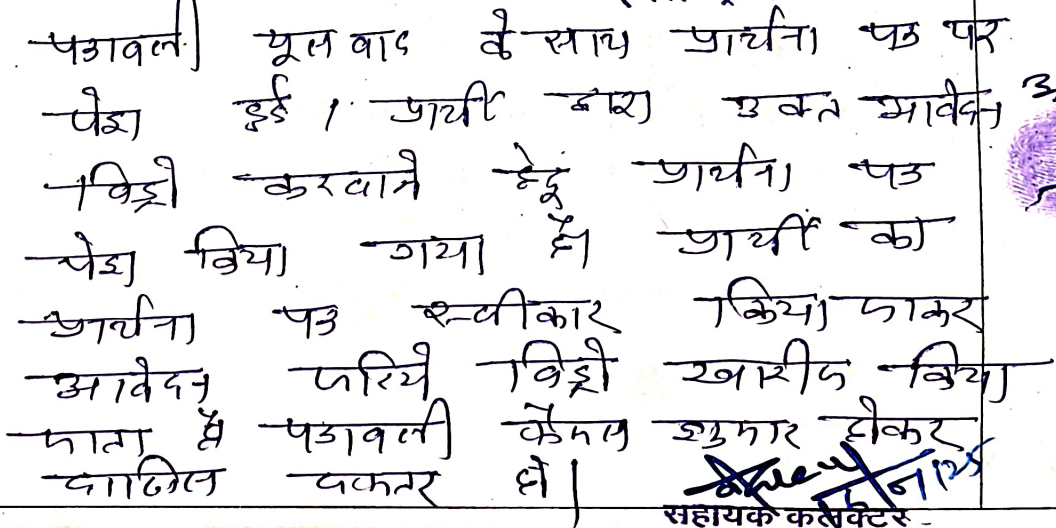 पत्रावली मूल वाद के साथ प्रार्थना पत्र पर
पेश हुई । प्रार्थी द्वारा उक्त आवेदन
विड्रो करवाने हेतु प्रार्थना पत्र
पेश किया गया है। प्रार्थी का
प्रार्थना पत्र स्वीकार किया जाकर
आवेदन जरिये विड्रो खारीज किया
जाता है पत्रावली फैसल शुमार होकर
दाखिल दफ्तर हो।
सहायक कलेक्टर